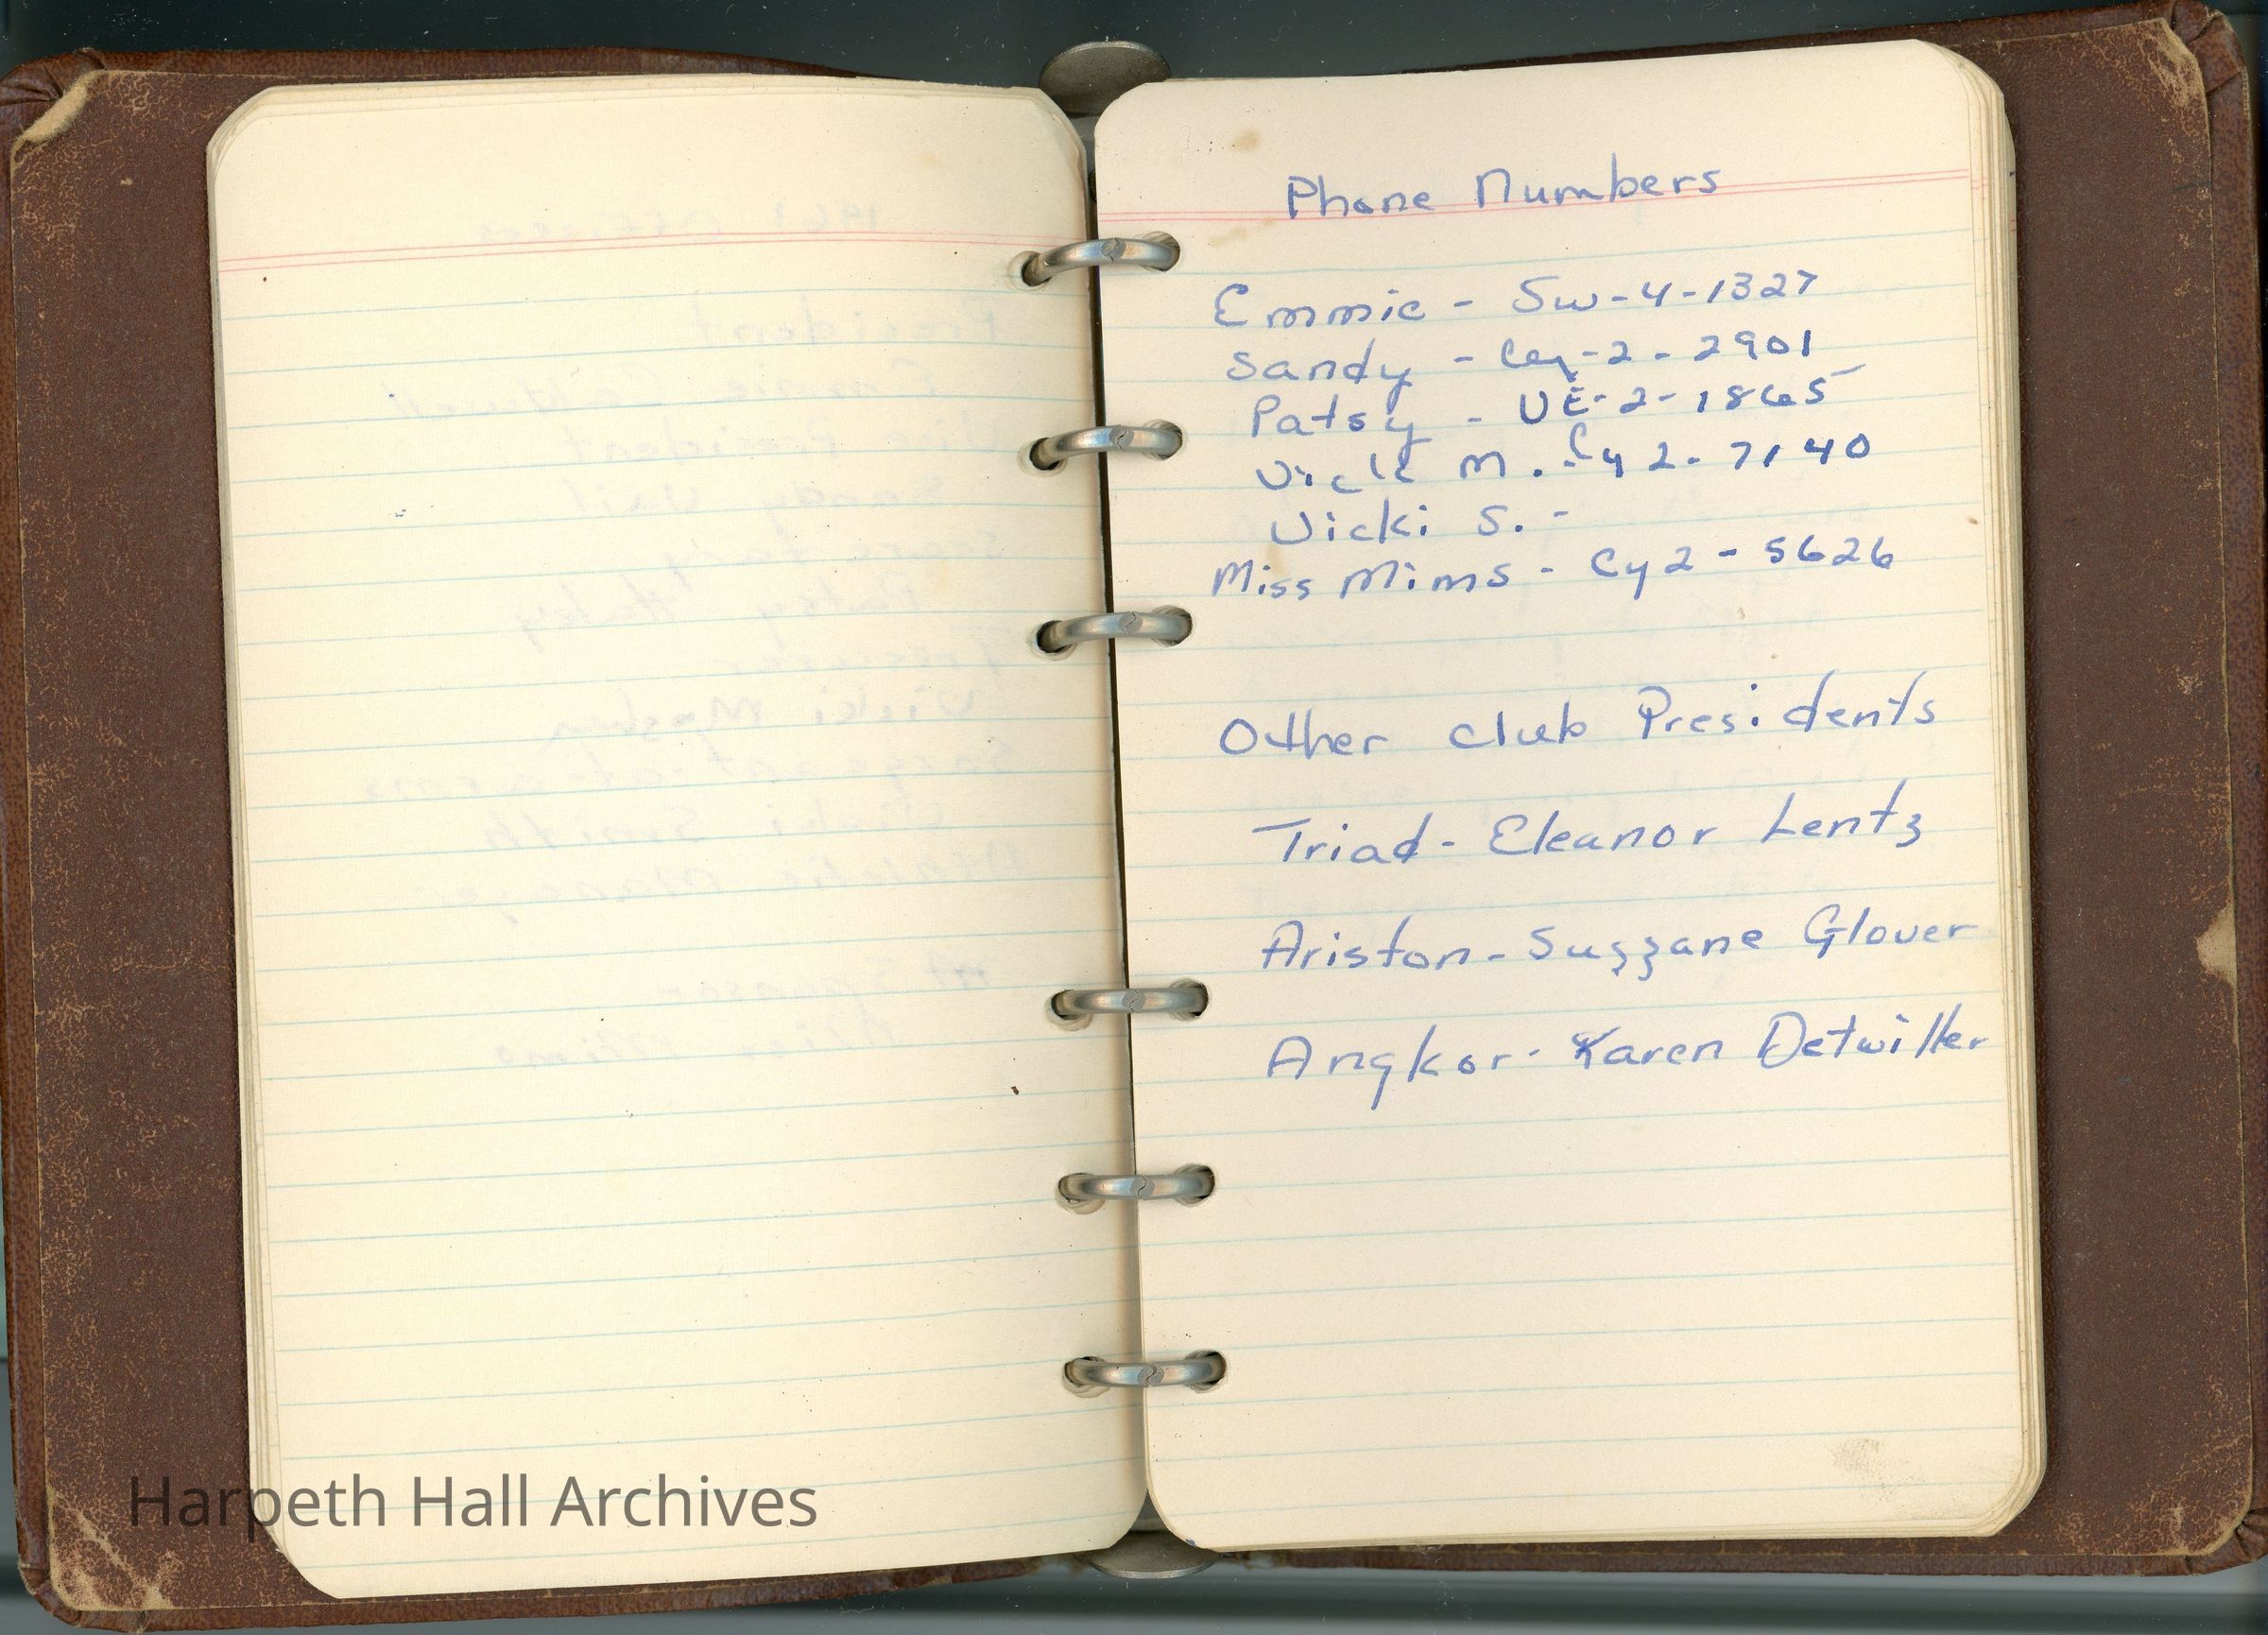 Phone Numbers
Emmie - Sw-4-1327
Sandy - Cy-2-2901
Patsy - VE-2-1865
Vicki M. - Cy 2-7140
Vicki S. -
Miss Mims - Cy2-5626
Other club Presidents
Triad - Eleanor Lentz
Ariston - Suzzane Glover
Angkor - Karen Detwiller
Harpeth Hall Archives